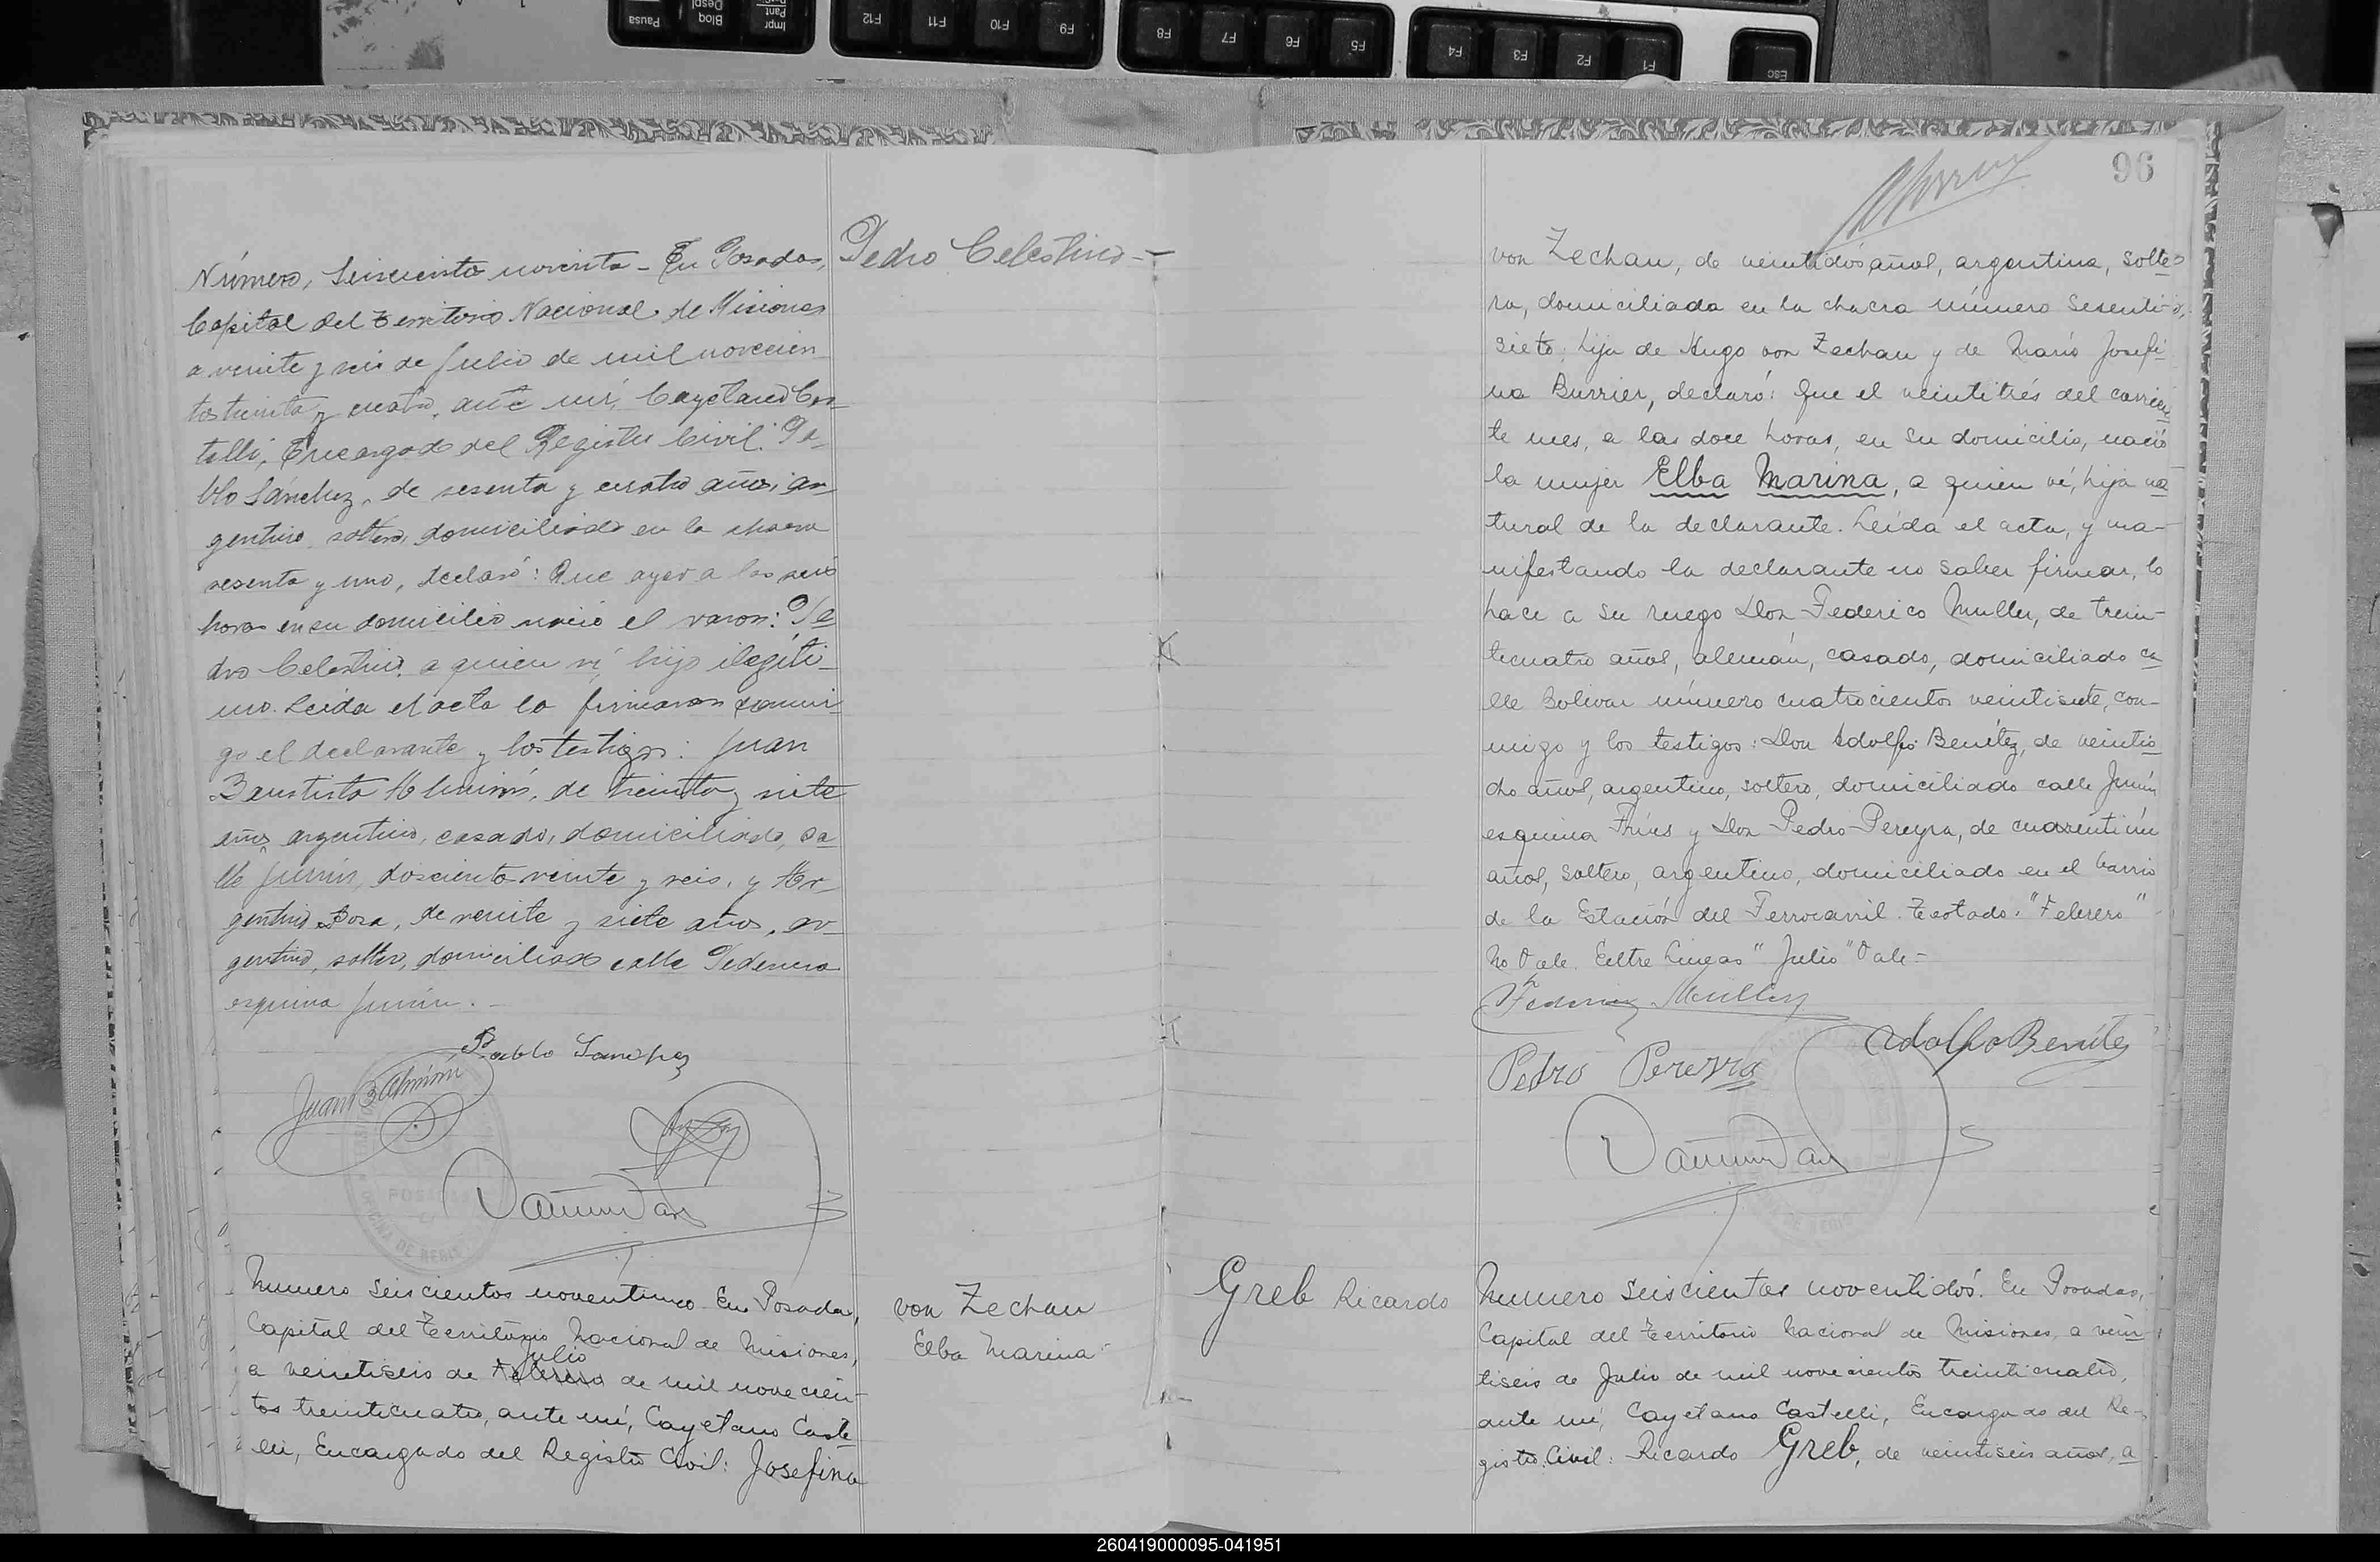 Pausa
Bloq
Despl
Impr
Pant
F12
F11
F10
F9
F8
F7
F6
F5
F4
F3
F2
F1
Esc
Pedro Celestino
Número, Seiscientos noventa - En Posadas,
Capital del Territorio Nacional de Misiones
a veinte y seis de Julio de mil novecien
tos treinta y cuatro, ante mí, Cayetano Cas
telli, Encargado del Registro Civil: Pa-
blo Sánchez, de sesenta y cuatro años, ar
gentino, soltero, domiciliado en la chacra
sesenta y uno, declaró: Que ayer a las seis
horas en su domicilio nació el varon: Pe
dro Celestino, a quien ví, hijo ilegíti-
mo. Leída el acta la firmaron conmi-
go el declarante y los testigos: Juan
Bautista Almirón, de treinta y siete
años argentino, casado, domiciliado, ca
lle Junín, doscientos veinte y seis, y Ar-
gentino Sosa, de veinte y siete años, ar-
gentino, soltero, domiciliado calle
esquina Junín. -
Pablo Sanchez
Juan B Almirón
POSADAS
OFICINA DE REGIS
Numero seiscientos noventiuno. En Posadas,
Capital del Territorio Nacional de Misiones,
Julio
a veintiseis de Febrero de mil novecien-
tos treinticuatro, ante mí, Cayetano Caste
lli, Encargado del Registro Civil: Josefina
von Zechau
Elba Marina
96
von Zechau, de veintidós años, argentina, solte
ra, domiciliada en la chacra número sesenti
siete, hija de Hugo von Zechau y de María Josefi
na Burrier, declaró: Que el veintitrés del corrien
te mes, a las doce horas, en su domicilio, nació
la mujer Elba Marina, a quien ví, hija na
tural de la declarante. Leída el acta, y ma-
nifestando la declarante no saber firmar, lo
hace a su ruego Don Federico Muller, de trein-
ticuatro años, alemán, casado, domiciliado ca
lle Bolivar número cuatrocientos veintisiete, con-
migo y los testigos: Don Adolfo Benítez, de veintio
cho años, argentino, soltero, domiciliado calle Junín
esquina Frías y Don Pedro Pereyra, de cuarentiún
años, soltero, argentino, domiciliado en el barrio
de la Estación del Ferrocarril. Testado: "Febrero"
No Vale. Entre lineas "Julio" Vale -
Federico Muller
Adolfo Benítez
Pedro Pereyra
Greb Ricardo
Numero seiscientos noventidós. En Posadas,
Capital del Territorio Nacional de Misiones, a vein
tiseis de Julio de mil novecientos treinticuatro,
ante mí, Cayetano Castelli, Encargado del Re-
gistro Civil: Ricardo Greb, de veintiseis años, a
260419000095-041951